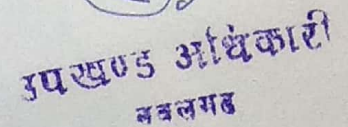 उपखण्ड अधिकारी
नवलगढ